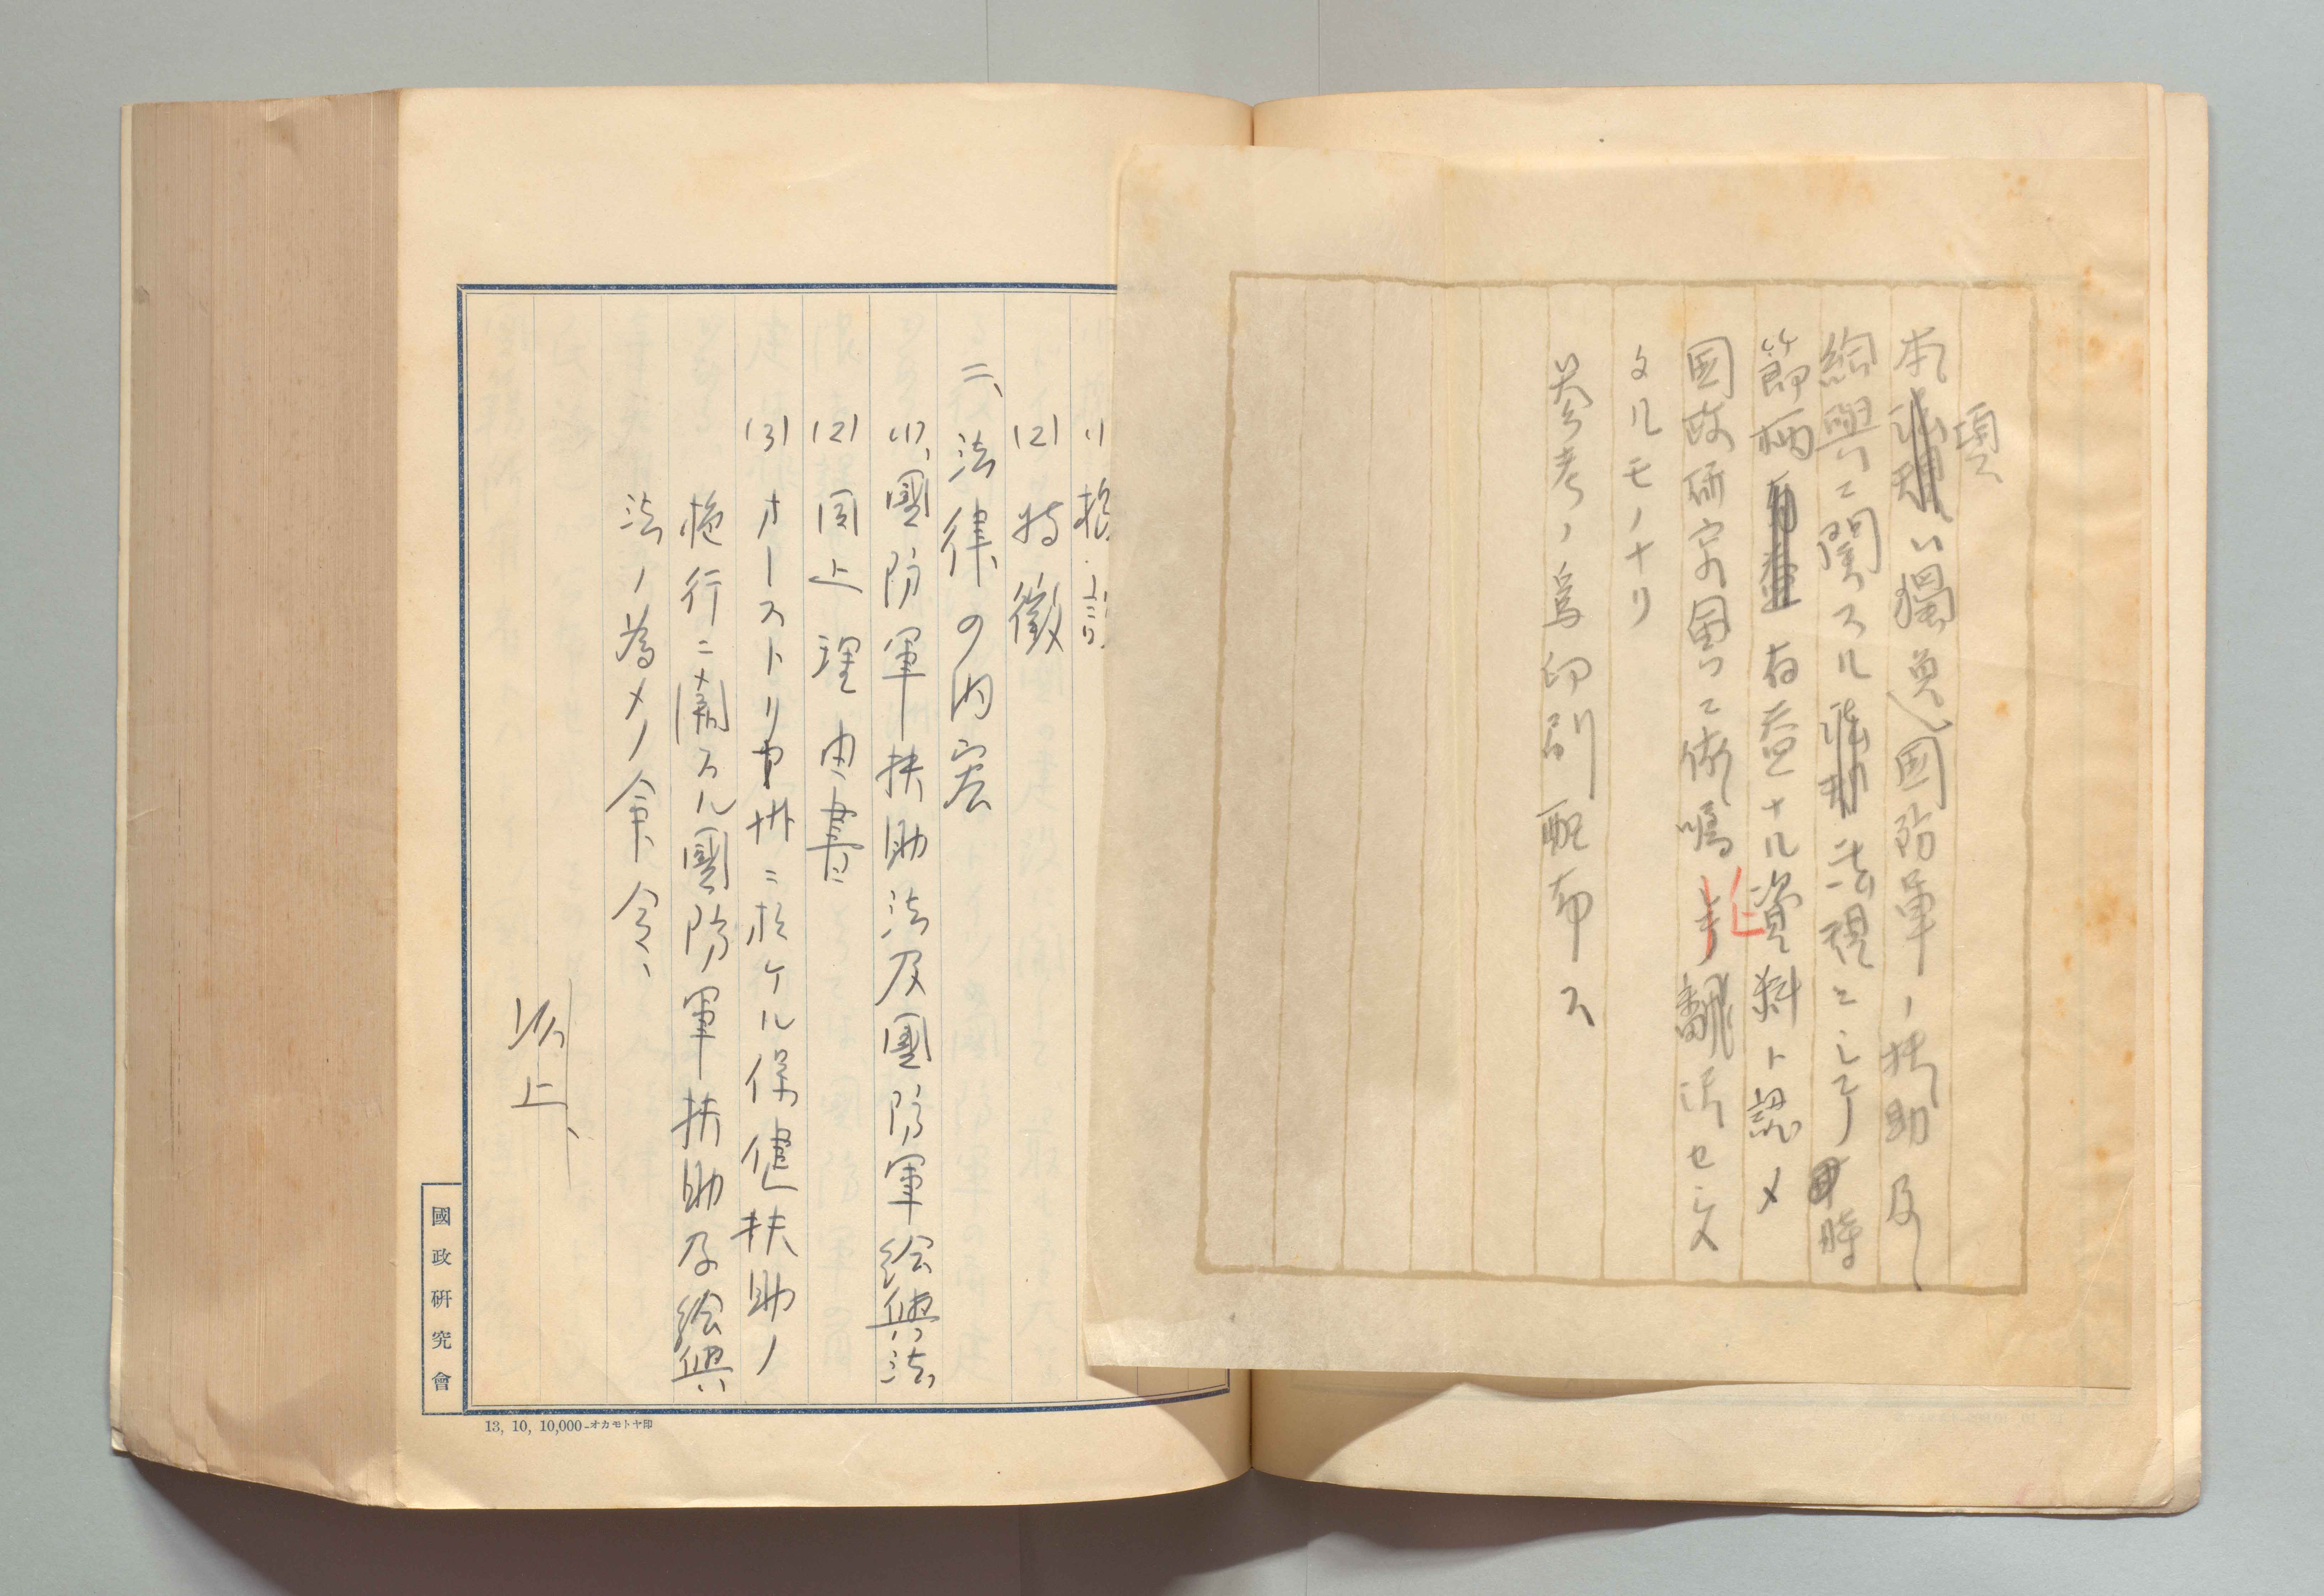 本項ハ獨逸國防軍ノ扶助及
給與ニ關スル法規ニシテ時
節柄有益ナル資料ト認メ
国政研究會ニ依囑シ翻訳セシメ
タルモノナリ
参考ノ爲印刷配布ス
(2) 特徴
二、法律の内容
(1)、國防軍扶助法及國防軍給與法
(2) 同上理由書
(3) オーストリヤ州ニ於ケル保健扶助ノ
施行ニ關スル國防軍扶助及給與
法ノ為メノ命令、
以上、
國政研究會
13, 10, 10,000-オカモトヤ印